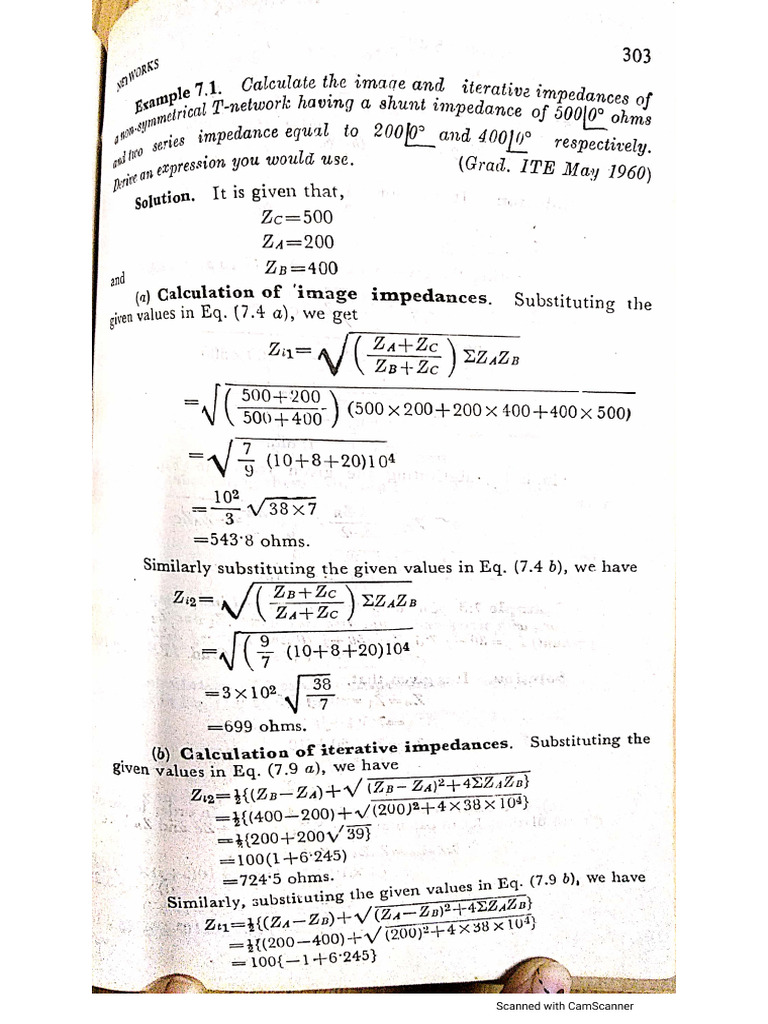 303
NETWORKS
Example 7.1. Calculate the image and iterative impedances of
a non-symmetrical T-network having a shunt impedance of 500|0° ohms
and two series impedance equal to 200|0° and 400|0° respectively.
Derive an expression you would use. (Grad. ITE May 1960)
Solution. It is given that,
Z_C=500
Z_A=200
and Z_B=400
(a) Calculation of image impedances. Substituting the
given values in Eq. (7.4 a), we get
Z_i1=√((Z_A+Z_C)/(Z_B+Z_C)) ΣZ_AZ_B
=√((500+200)/(500+400)) (500×200+200×400+400×500)
=√7/9 (10+8+20)10⁴
=10²/3 √38×7
=543·8 ohms.
Similarly substituting the given values in Eq. (7.4 b), we have
Z_i2=√((Z_B+Z_C)/(Z_A+Z_C)) ΣZ_AZ_B
=√(9/7 (10+8+20)10⁴
=3×10² √38/7
=699 ohms.
(b) Calculation of iterative impedances. Substituting the
given values in Eq. (7.9 a), we have
Z_t2=½{(Z_B−Z_A)+√(Z_B−Z_A)²+4ΣZ_AZ_B}
=½{(400−200)+√(200)²+4×38×10⁴}
=½{200+200√39}
=100(1+6·245)
=724·5 ohms.
Similarly, substituting the given values in Eq. (7.9 b), we have
Z_t1=½{(Z_A−Z_B)+√(Z_A−Z_B)²+4ΣZ_AZ_B}
=½{(200−400)+√(200)²+4×38×10⁴}
=100{−1+6·245}
Scanned with CamScanner